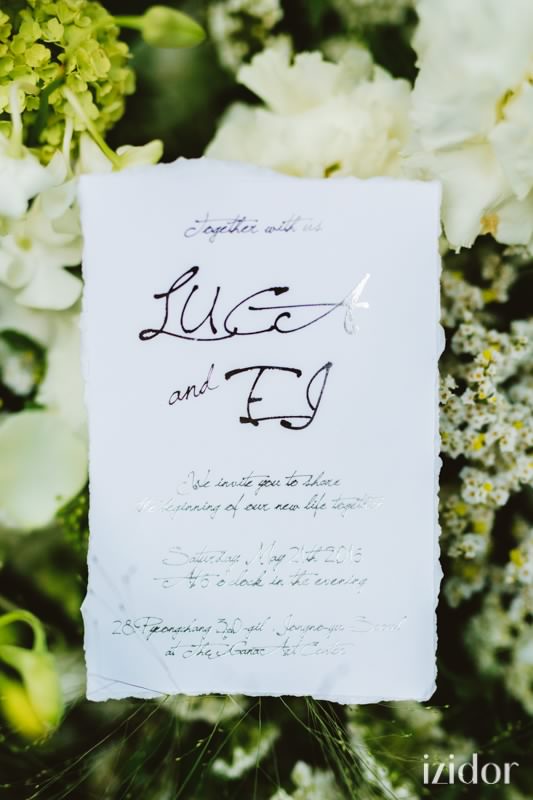 Together with us
LUCA
and EJ
We invite you to share
the beginning of our new life together
Saturday, May 21th 2016
At 6 o'clock in the evening
28 Pyeongchang 30-gil Jongno-gu Seoul
at The Gana Art Center
izidor